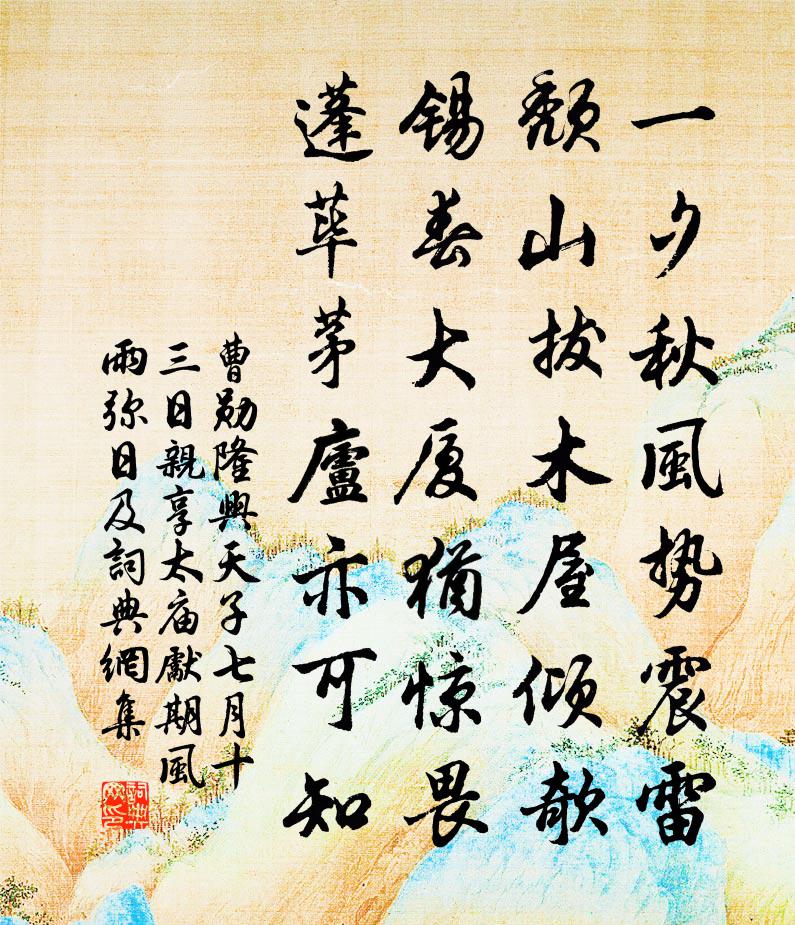 一夕秋風勢震雷
頹山拔木屋傾欹
錫春大厦猶惊畏
蓬蓽茅廬亦可知
曹勛隆興天子七月十
三日親享太庙獻期風
雨弥日及詞典網集